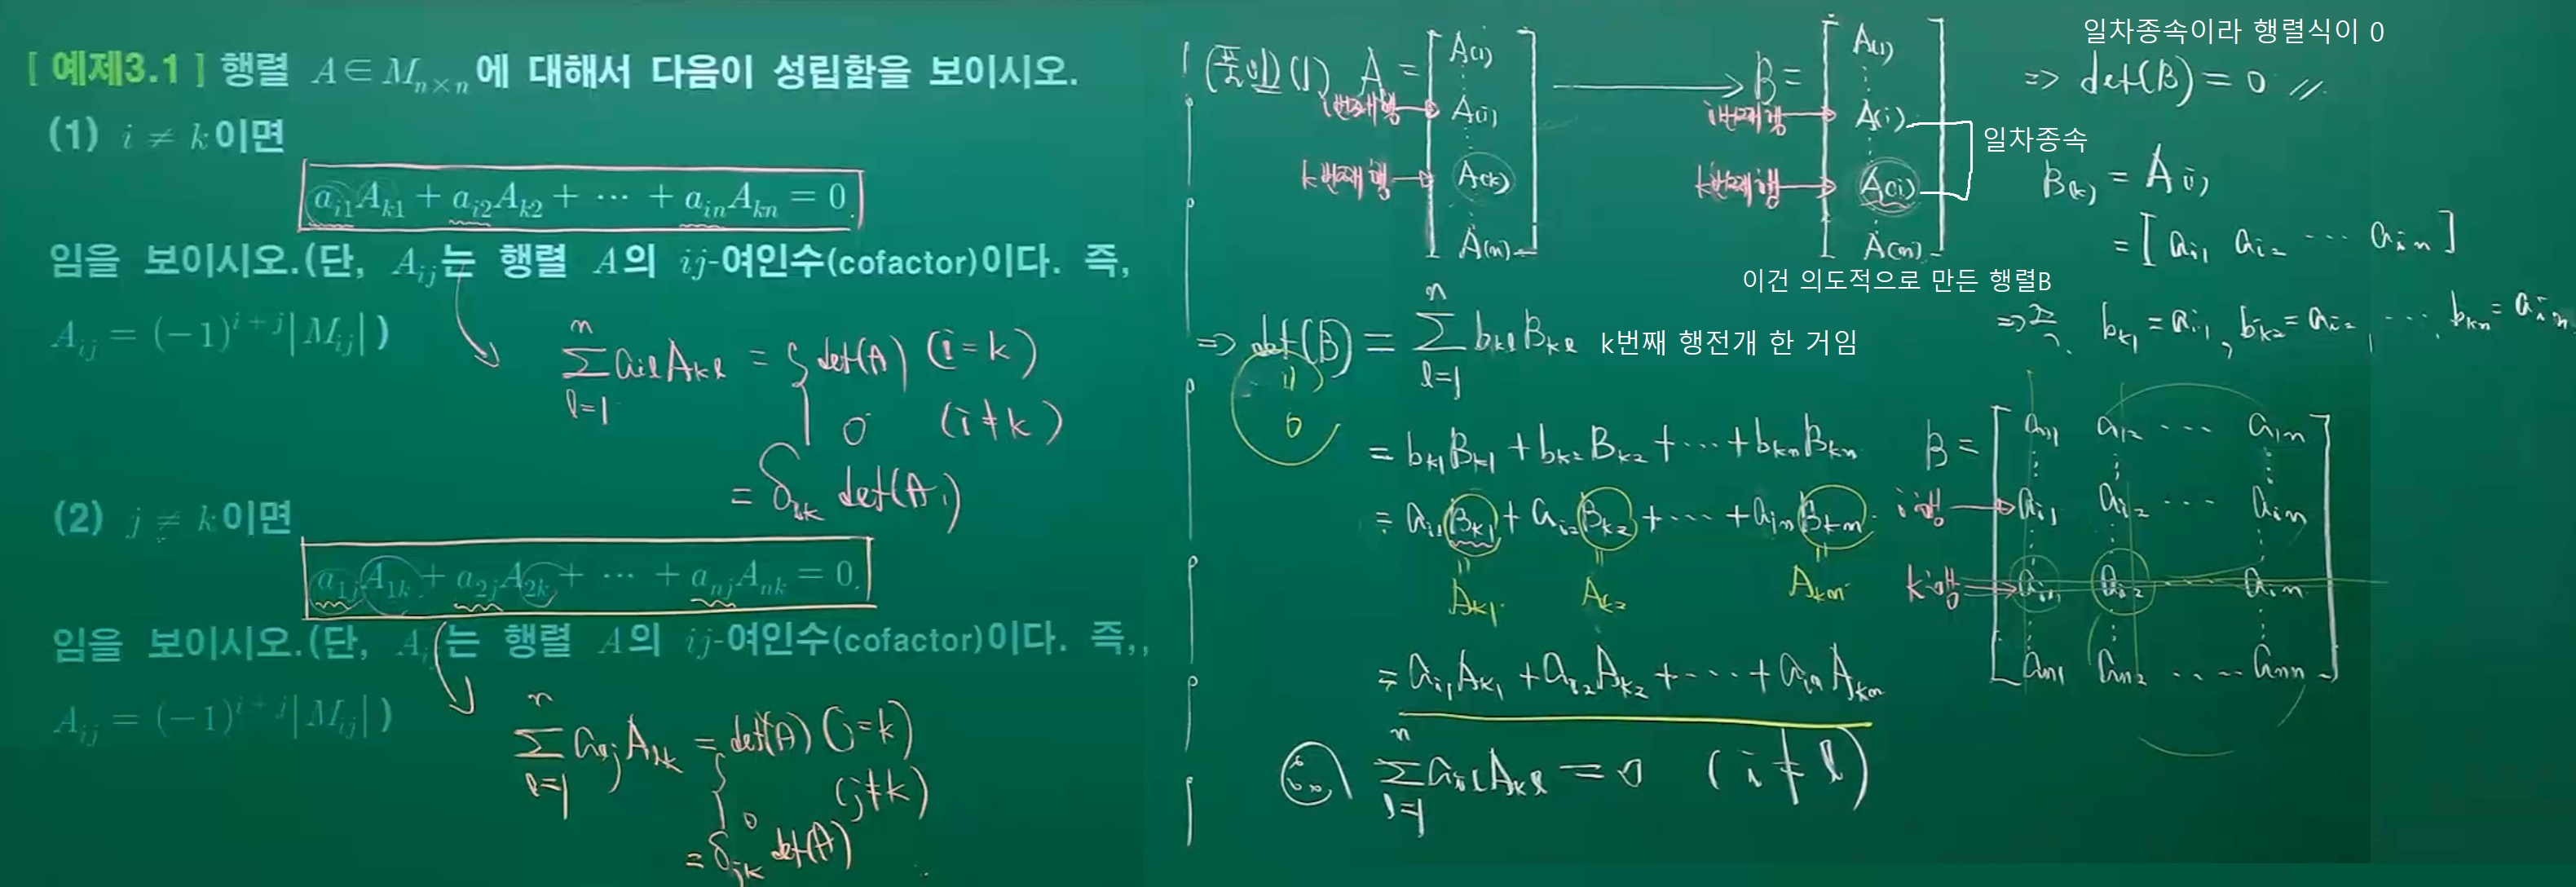 [ 예제3.1 ] 행렬 A ∈ M_{n×n}에 대해서 다음이 성립함을 보이시오.
(1) i ≠ k이면
a_{i1}A_{k1} + a_{i2}A_{k2} + ⋯ + a_{in}A_{kn} = 0.
임을 보이시오.(단, A_{ij}는 행렬 A의 ij-여인수(cofactor)이다. 즉,
A_{ij} = (-1)^{i+j}|M_{ij}| )
\sum_{l=1}^{n} a_{il}A_{kl} = { det(A) (i=k)
0 (i≠k)
= δ_{ik} det(A)
(2) j ≠ k이면
a_{1j}A_{1k} + a_{2j}A_{2k} + ⋯ + a_{nj}A_{nk} = 0.
임을 보이시오.(단, A_i 는 행렬 A의 ij-여인수(cofactor)이다. 즉,,
A_{ij} = (-1)^{i+j}|M_{ij}| )
\sum_{l=1}^{n} a_{lj}A_{lk} = { det(A) (j=k)
0 (j≠k)
= δ_{jk} det(A)
(풀이) (1) A = [ A_{(1)} ⋮ A_{(i)} ⋮ A_{(k)} ⋮ A_{(n)} ] → B = [ A_{(1)} ⋮ A_{(i)} ⋮ A_{(i)} ⋮ A_{(n)} ]
i번째행
k번째행
i번째행
k번째행
일차종속이라 행렬식이 0
⇒ det(B) = 0 //
일차종속
B_{(k)} = A_{(i)}
= [ a_{i1} a_{i2} ⋯ a_{in} ]
이건 의도적으로 만든 행렬B
⇒ b_{k1} = a_{i1}, b_{k2} = a_{i2}, ⋯, b_{kn} = a_{in}
⇒ det(B) = \sum_{l=1}^{n} b_{kl}B_{kl} k번째 행전개 한 거임
||
0
= b_{k1}B_{k1} + b_{k2}B_{k2} + ⋯ + b_{kn}B_{kn}
= a_{i1}B_{k1} + a_{i2}B_{k2} + ⋯ + a_{in}B_{kn}
|| || ||
A_{k1} A_{k2} A_{kn}
= a_{i1}A_{k1} + a_{i2}A_{k2} + ⋯ + a_{in}A_{kn}
∴ \sum_{l=1}^{n} a_{il}A_{kl} = 0 (i ≠ l)
B = [ a_{11} a_{12} ⋯ a_{1n}
i행 → a_{i1} a_{i2} ⋯ a_{in}
k행 → a_{i1} a_{i2} ⋯ a_{in}
a_{n1} a_{n2} ⋯ a_{nn} ]